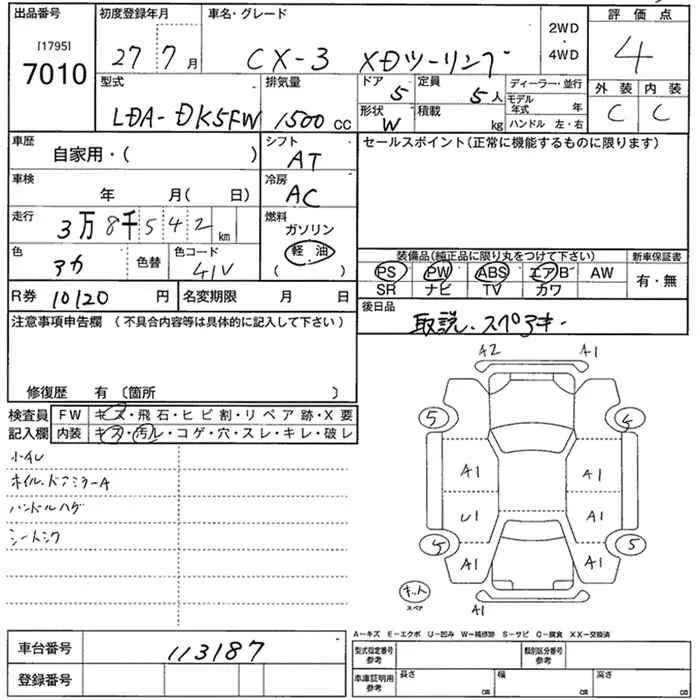 出品番号 初度登録年月 車名・グレード 評価点
[1795]
7010 27 7月 CX-3 XDツーリング 2WD・4WD 4
型式 排気量 ドア 定員 ディーラー・並行 外装 内装
LDA-DK5FW 1500cc 5 5人 モデル年式 年 C C
形状 積載
W kg ハンドル 左・右
車歴 自家用・( ) シフト AT セールスポイント(正常に機能するものに限ります)
車検 年 月( 日) 冷房 AC
走行 3万8千542km 燃料 ガソリン
軽油
( )
色 アカ 色替 色コード 41V
装備品(純正品に限り丸をつけて下さい) 新車保証書
PS PW ABS エアB AW 有・無
SR ナビ TV カワ
R券 10120円 名変期限 月 日 後日品
取説、スペアキー
注意事項申告欄 (不具合内容等は具体的に記入して下さい)
修復歴 有 〔箇所 〕
検査員 FW キズ・飛石・ヒビ割・リペア跡・X要
記入欄 内装 キズ・汚レ・コゲ・穴・スレ・キレ・破レ
小キレ
ホイル、ドアミラーA
ハンドルハゲ
A2 A1
5 5
A1 A1
U1 A1
5 5
A1 A1
キット
スペア
A1
A-キズ E-エクボ U-凹み W-補修跡 S-サビ C-腐食 XX-交換済
車台番号 113187 型式指定番号 参考 類別区分番号 参考
登録番号 車庫証明用 参考 長さ cm 幅 cm 高さ cm